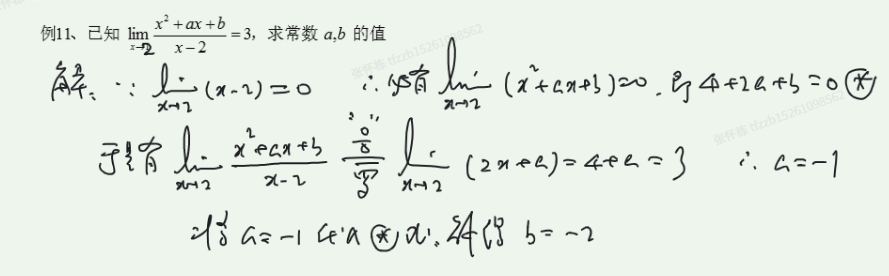 例11、已知 lim_{x→2} (x²+ax+b)/(x-2) = 3，求常数 a,b 的值
解：∵ lim_{x→2} (x-2) = 0 ∴必有 lim_{x→2} (x²+ax+b)=0，即 4+2a+b=0 ⊛
于是有 lim_{x→2} (x²+ax+b)/(x-2) "0/0" = lim_{x→2} (2x+a)=4+a=3 ∴ a=-1
将 a=-1 代入 ⊛ 式，解得 b=-2
张怀栋 tfzzb15261098562
张怀栋 tfzzb15261098562